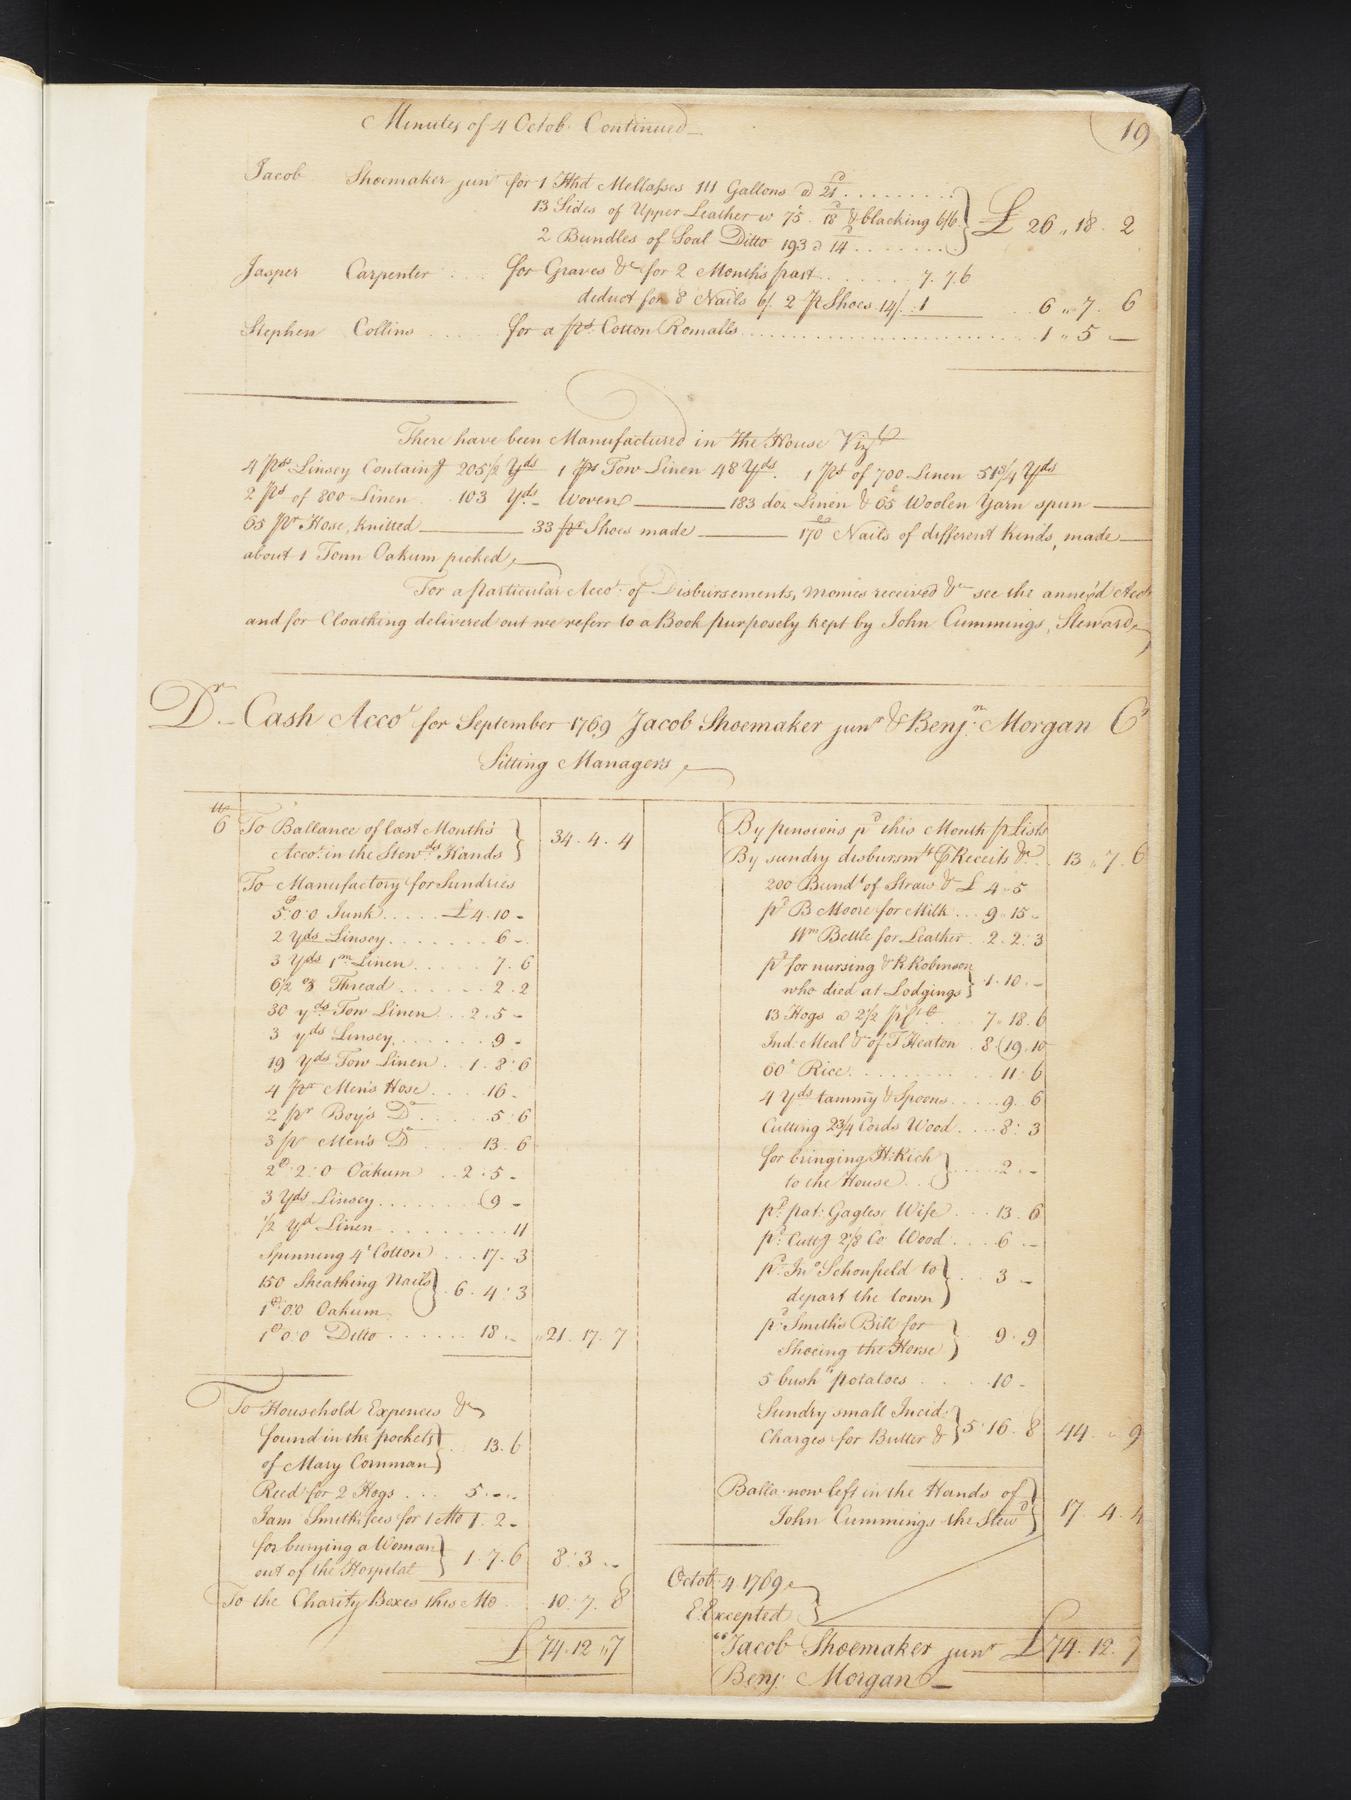 Minutes of 4 Octob. Continued
19
Jacob Shoemaker junr for 1 Hhd Mellasses 111 Gallons @ 21d
13 Sides of Upper Leather w 75 18d & blacking 6/6 } £ 26 ,, 18 . 2
2 Bundles of Soal Ditto 193 @ 14
Jasper Carpenter for Graves &c for 2 Months past 7 . 7 . 6
deduct for 8 Nails 6/. 2 pr Shoes 14/. 1 6 ,, 7 . 6
Stephen Collins for a ps. Cotton Romalls 1 ,, 5 —
There have been Manufactured in the House Vizt
4 Ps. Linsey Containg 205 1/2 Yds 1 ps Tow Linen 48 Yds. 1 Ps of 700 Linen 51 3/4 Yds
2 Ps of 800 Linen 103 Yds Woven — 183 doz Linen & 65 Woolen Yarn spun —
65 Pr Hose, knitted — 33 pr Shoes made — 170 Nails of different kinds, made —
about 1 Tonn Oakum picked,
For a particular Acco: of Disbursements, monies received &c see the annex'd Acco
and for Cloathing delivered out we referr to a Book purposely kept by John Cummings, Steward
Dr. Cash Accot for September 1769 Jacob Shoemaker junr & Benjn Morgan Cr
Sitting Managers
6 To Ballance of last Months
Accot. in the Stewds Hands } 34 . 4 . 4
To Manufactory for Sundries
5:0:0 Junk £ 4 . 10 -
2 Yds Linsey 6 -
3 Yds 1m Linen 7 . 6
6 1/2 Thread 2 . 2
30 yds Tow Linen 2 . 5 -
3 yds Linsey 9 -
19 Yds Tow Linen 1 . 8 : 6
4 pr Men's Hose 16 .
2 pr Boy's Do 5 : 6
3 pr Men's Do 13 . 6
2C : 2 : 0 Oakum 2 : 5 -
3 Yds Linsey 9 -
1/2 Yd Linen 11
Spinning 4 Cotton 17 . 3
150 Sheathing Nails } 6 . 4 : 3
1C 0:0 Oakum
1C 0:0 Ditto 18 . - 21 . 17 . 7
To Household Expences &c
found in the pockets
of Mary Cornman } 13 . 6
Recd for 2 Hogs 5 . - . -
Jam Smith fees for 1 Mo 1 . 2 -
for burying a Woman
out of the Hospital } 1 . 7 . 6 8 : 3 . -
To the Charity Boxes this Mo 10 : 7 . 8
£ 74 . 12 ,, 7
By pensions pd this Month pr Lists
By sundry disbursmts pr Receits &c 13 ,, 7 . 6
200 Bunds of Straw & £ 4 ,, 5
pd B Moore for Milk 9 . 15 -
Wm Bettle for Leather 2 . 2 : 3
pd for nursing & R. Robinson
who died at Lodgings } 1 . 10 . -
13 Hogs @ 2 1/2 7 ,, 18 . 6
Ind: Meal & of T Heaton 8 . 19 . 10
60 Rice 11 . 6
4 Yds tammy & Spoons 9 . 6
Cutting 2 3/4 Cords Wood 8 : 3
for bringing H: Rich
to the House } 2 . -
pd. pat: Gagles Wife 13 . 6
pd. Cuttg 2 1/8 Co Wood 6 . -
pd. Jno Schonfield to
depart the town } 3 -
pd: Smith's Bill for
Shoeing the Horse } 9 . 9
5 bushls potatoes 10 -
Sundry small Incid:
Charges for Butter & } 5 . 16 . 8 44 . ,, 9
Balla. now left in the Hands of
John Cummings the Stewd } 17 . 4 . 4
Octob. 4 1769
E. Excepted
Jacob Shoemaker junr £ 74 . 12 . 7
Benj: Morgan